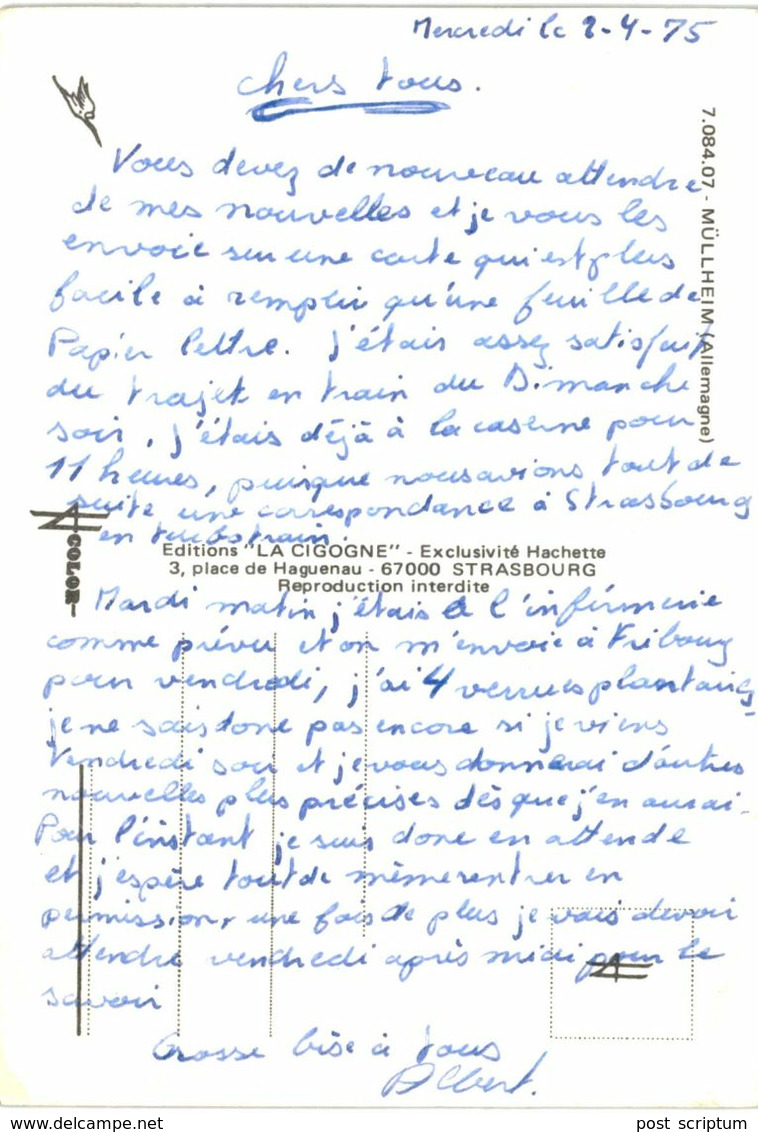 Mercredi le 2-4-75
Chers tous.
Vous devez de nouveau attendre
de mes nouvelles et je vous les
envoie sur une carte qui est plus
facile à remplir qu'une feuille de
Papier lettre. J'étais assez satisfait
du trajet en train du Dimanche
soir, j'étais déjà à la caserne pour
11 heures, puisque nous avions tout de
suite une correspondance à Strasbourg
en train.
Mardi matin j'étais à l'infirmerie
comme prévu et on m'envoie à Fribourg
pour vendredi, j'ai 4 verrues plantaires,
je ne sais donc pas encore si je viens
Vendredi soir et je vous donnerai d'autres
nouvelles plus précises dès que j'en aurai.
Pour l'instant je suis donc en attende
et j'espère tout de même rentrer en
permission, une fois de plus je vais devoir
attendre vendredi après midi pour le
savoir
Grosse bise à tous
Albert.
7.084.07 - MÜLLHEIM (Allemagne)
COLOR
Editions "LA CIGOGNE" - Exclusivité Hachette
3, place de Haguenau - 67000 STRASBOURG
Reproduction interdite
post scriptum